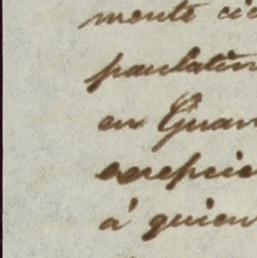 mente cic
paulatin
en Guan
excepcio
á quien